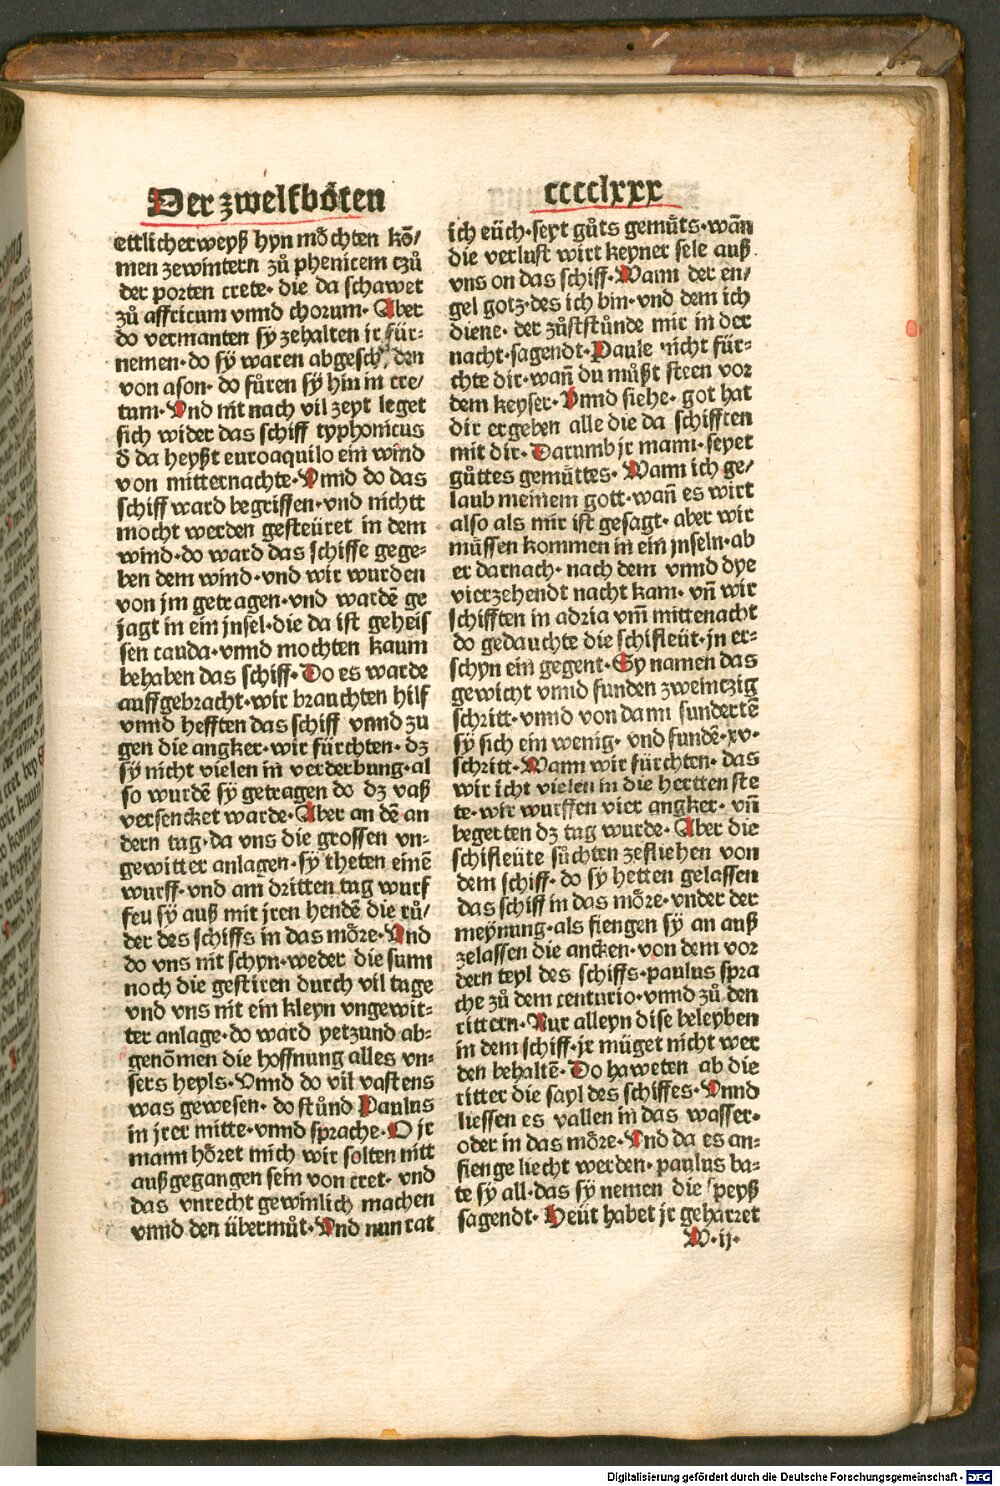 Der zwelfboͤten
cccclxxx
ettlicher weyß hyn moͤchten kō/
men ze wintern zů phenicem czů
der porten crete· die da schawet
zů affricum vnnd chorum· Aber
do vermanten sy zehalten ir für-
nemen· do sy waren abgesch den
von ason· do fůren sy hin in cre/
tam· Vnd nit nach vil zeyt leget
sich wider das schiff typhonicus
d̄ da heyßt euroaquilo ein wind
von mitternachte· Vnnd do das
schiff ward begriffen· vnd nichtt
mocht werden gesteüret in dem
wind· do ward das schiffe gege-
ben dem wind· vnd wir wurden
von jm getragen· vnd wardē ge
jagt in ein jnsel· die da ist geheis
sen cauda· vnnd mochten kaum
behaben das schiff· Do es warde
auffgebracht· wir brauchten hilf
vnnd hefften das schiff vnnd zu
gen die angker· wir fürchten· dz
sy nicht vielen in verderbung· al
so wurdē sy getragen do dz vaß
versencket warde· Aber an dē an
dern tag· da vns die grossen vn-
gewitter anlagen· sy theten einē
wurff· vnd am dritten tag wurf
feu sy auß mit jren hendē die rů/
der des schiffs in das moͤre· Vnd
do vns nit schyn· weder die sunn
noch die gestiren durch vil tage
vnd vns nit ein kleyn vngewit-
ter anlage· do ward yetzund ab-
genōmen die hoffnung alles vn-
sers heyls· Vnnd do vil vastens
was gewesen· do stůnd Paulus
in jrer mitte· vnnd sprache· O jr
mann hoͤret mich wir solten nitt
auß gegangen sein von cret· vnd
das vnrecht gewinlich machen
vnnd den übermůt· Vnd nun rat
ich eüch· seyt gůts gemuͤts· wañ
die verlust wirt keyner sele auß
vns on das schiff· Wann der en/
gel gotz· des ich bin· vnd dem ich
diene· der zůstůnde mir in der
nacht· sagendt· Paule nicht für-
chte dir· wañ du můßt steen vor
dem keyser· Vnnd siehe· got hat
dir ergeben alle die da schifften
mit dir· Darumb jr mann· seyet
gůttes gemuͤttes· Wann ich ge/
laub meinem gott· wañ es wirt
also als mir ist gesagt· aber wir
muͤssen kommen in ein jnseln· ab
er darnach· nach dem vnnd dye
vierzehendt nacht kam· vñ wir
schifften in adria vm̄ mittenacht
do gedauchte die schifleüt· jn er-
schyn ein gegent· Sy namen das
gewicht vnnd funden zweintzig
schritt· vnnd von dann sundertē
sy sich ein wenig· vnd fundē· xv·
schritt· Wann wir fürchten· das
wir icht vielen in die hertten ste
te· wir wurffen vier angker· vñ
begerten dz tag wurde· Aber die
schifleüte suͤchten zefliehen von
dem schiff· do sy hetten gelassen
das schiff in das moͤre· vnder der
meynung· als fiengen sy an auß
zelassen die ancken· von dem vor
dern teyl des schiffs· paulus spra
che zů dem centurio· vnnd zů den
rittern· Nur alleyn dise beleyben
in dem schiff· jr müget nicht wer
den behaltē· Do haweten ab die
ritter die sayl des schiffes· Vnnd
liessen es vallen in das wasser·
oder in das moͤre· Vnd da es an-
fienge liecht werden· paulus ba-
te sy all· das sy nemen die speyß
sagendt· Heüt habet jr geharret
W·ij·
Digitalisierung gefördert durch die Deutsche Forschungsgemeinschaft - DFG